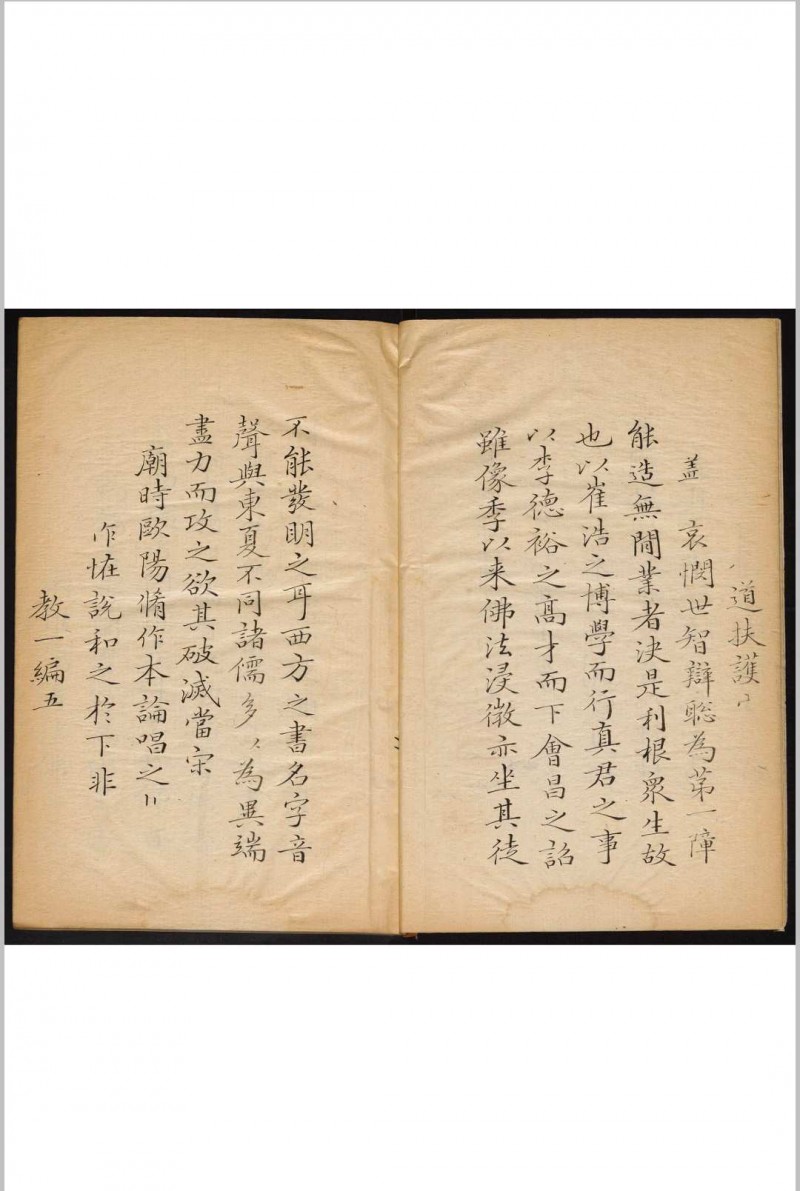 道扶護
蓋 哀憫世智辯聡為苐一障
能造無間業者決是利根衆生故
也以崔浩之博學而行真君之事
以李德裕之髙才而下會昌之詔
雖像季以来佛法浸微亦坐其徒
不能發明之耳西方之書名字音
聲與東夏不同諸儒多〻為異端
盡力而攻之欲其破滅當宋
廟時歐陽脩作本論唱之
作恠說和之於下非
教一編五